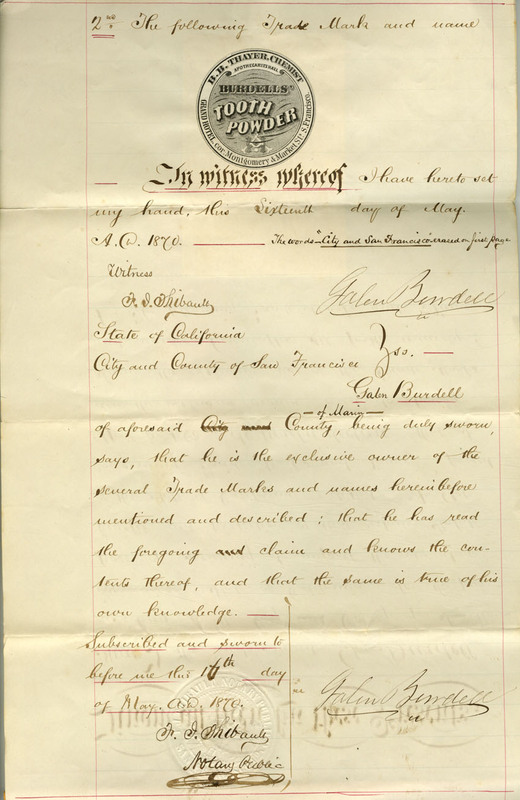 2nd The following Trade Mark and name
H.B. THAYER, CHEMIST
APOTHECARIES HALL
BURDELLS'
TOOTH
POWDER
GRAND HOTEL cor. Montgomery & Market Sts S. Francisco.
In witness whereof I have hereto set
my hand, this Sixteenth day of May.
A.D. 1870. The words "City and San Francisco" erased on first page
Witness
F. J. Thibault
Galen Burdell
State of California
City and County of San Francisco } ss.
Galen Burdell
of Marin
of aforesaid City and County, being duly sworn,
says, that he is the exclusive owner of the
several Trade Marks and names hereinbefore
mentioned and described; that he has read
the foregoing and claim and knows the con-
tents thereof, and that the same is true of his
own knowledge.
Subscribed and sworn to
before me this 16th day
of May. A.D. 1870.
Galen Burdell
F. J. Thibault
Notary Public